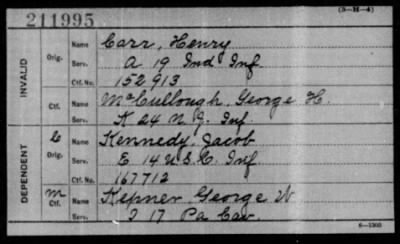 211995
(3-H-4)
INVALID
Orig.
Name Carr, Henry
Serv. A 19 Ind Inf
Ctf. No. 152913
Ctf.
Name McCullough, George H.
Serv. K 24 N.J. Inf.
DEPENDENT
C
Orig.
Name Kennedy, Jacob
Serv. E 14 U.S.C. Inf
Ctf. No. 167712
m
Ctf.
Name Kepner George W
Serv. I 17 Pa Cav
6-1303